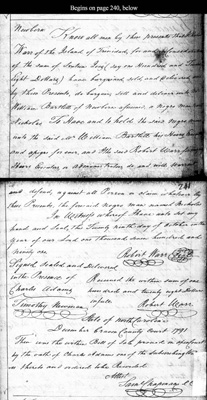 Begins on page 240, below
Newbern Know all men by these presents that
Warr of the Island of Trinidad for and
of the sum of say one Hundred and
Eight Dollars have bargained sold and delivered
by these Presents do bargain sell and deliver unto
William Bartlett of Newbern aforesaid a Negro man
Nicholas To Have and to hold the said Negro man
unto the said Mr William Bartlett his
and assigns for ever, and I the said Robert Warr for my
Heirs Executors or Administrators do and will warrant
241
and defend, against all Persons
these Presents, the foresaid Negro man named Nicholas
In Witness whereof I have unto set my
hand and Seal, this Twenty ninth day of October
year of our Lord one thousand seven hundred and
Ninety one
Robert Warr
Signed Sealed and Delivered
in the Presence of
Charles Adams
Timothy Newman
Received the within sum of one
hundred and twenty eight Dollars
Robert Warr
State of North Carolina
December Craven County Court 1791
Then was the within Bill of Sale proved in open Court
by the oath of Charles Adams one of the Subscribing
thereto and ordered to be Recorded
Attest
Saml Chapman CC